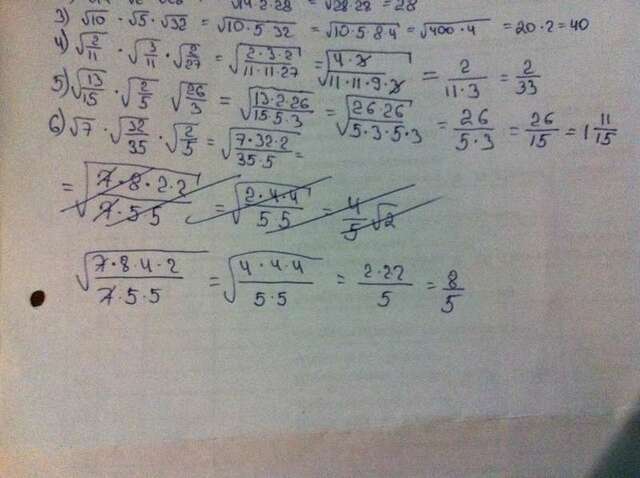 = √28·28 = 28
3) √10 · √5 · √32 = √10·5·32 = √10·5·8·4 = √400·4 = 20·2 = 40
4) √(2/11) · √(3/11) · √(2/27) = √(2·3·2/11·11·27) = √(4·3/11·11·9·3) = 2/11·3 = 2/33
5) √(13/15) · √(2/5) · √(26/3) = √(13·2·26/15·5·3) = √(26·26/5·3·5·3) = 26/5·3 = 26/15 = 1 11/15
6) √7 · √(32/35) · √(2/5) = √(7·32·2/35·5) =
= √(7·8·2·2/7·5·5) = √(2·4·4/5·5) = 4/5 √2
√(7·8·4·2/7·5·5) = √(4·4·4/5·5) = 2·22/5 = 8/5